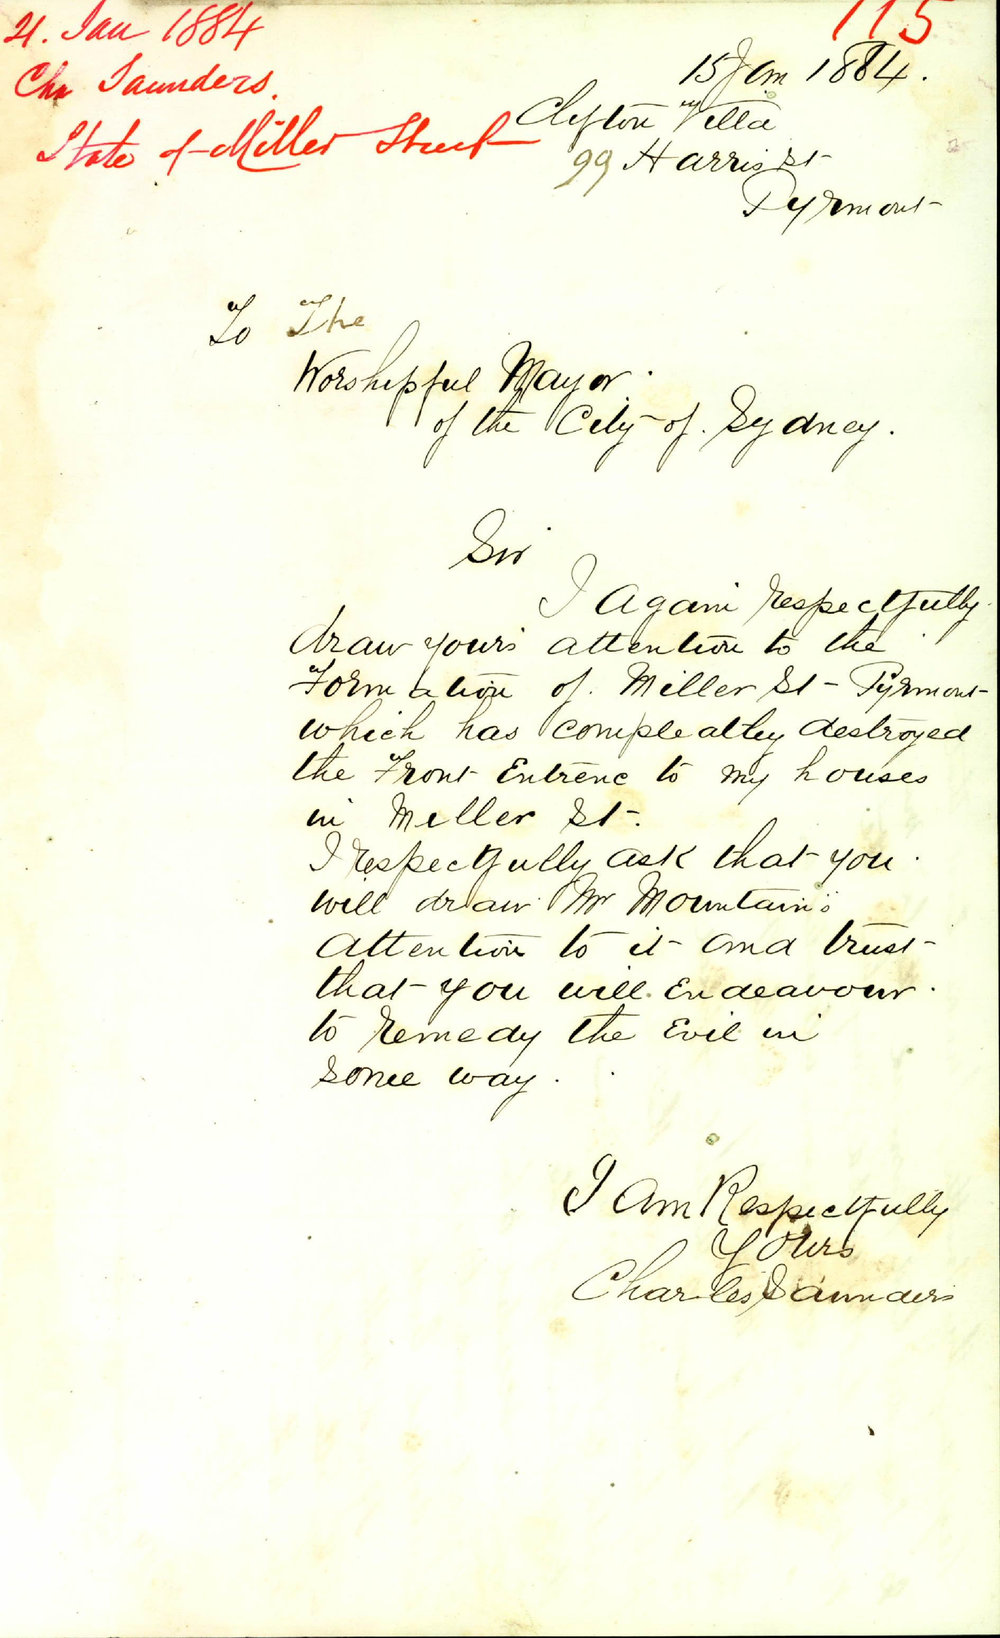 21. Jan 1884
Chs Saunders.
State of Miller Street
115
15 Jan 1884.
Clifton Villa
99 Harris St
Pyrmont
To The
Worshipful Mayor.
of the City of. Sydney.
Sir
I again respectfully
draw yours attention to the
Formation of. Miller St - Pyrmont
which has complealtey destroyed
the Front Entrenc to my houses
in Miller St.
I respectfully ask that you.
will draw Mr Mountain's
attention to it and trust
that you will Endeavour.
to remedy the Evil in
some way.
I am Respectfully
Yours
Charles Saunders